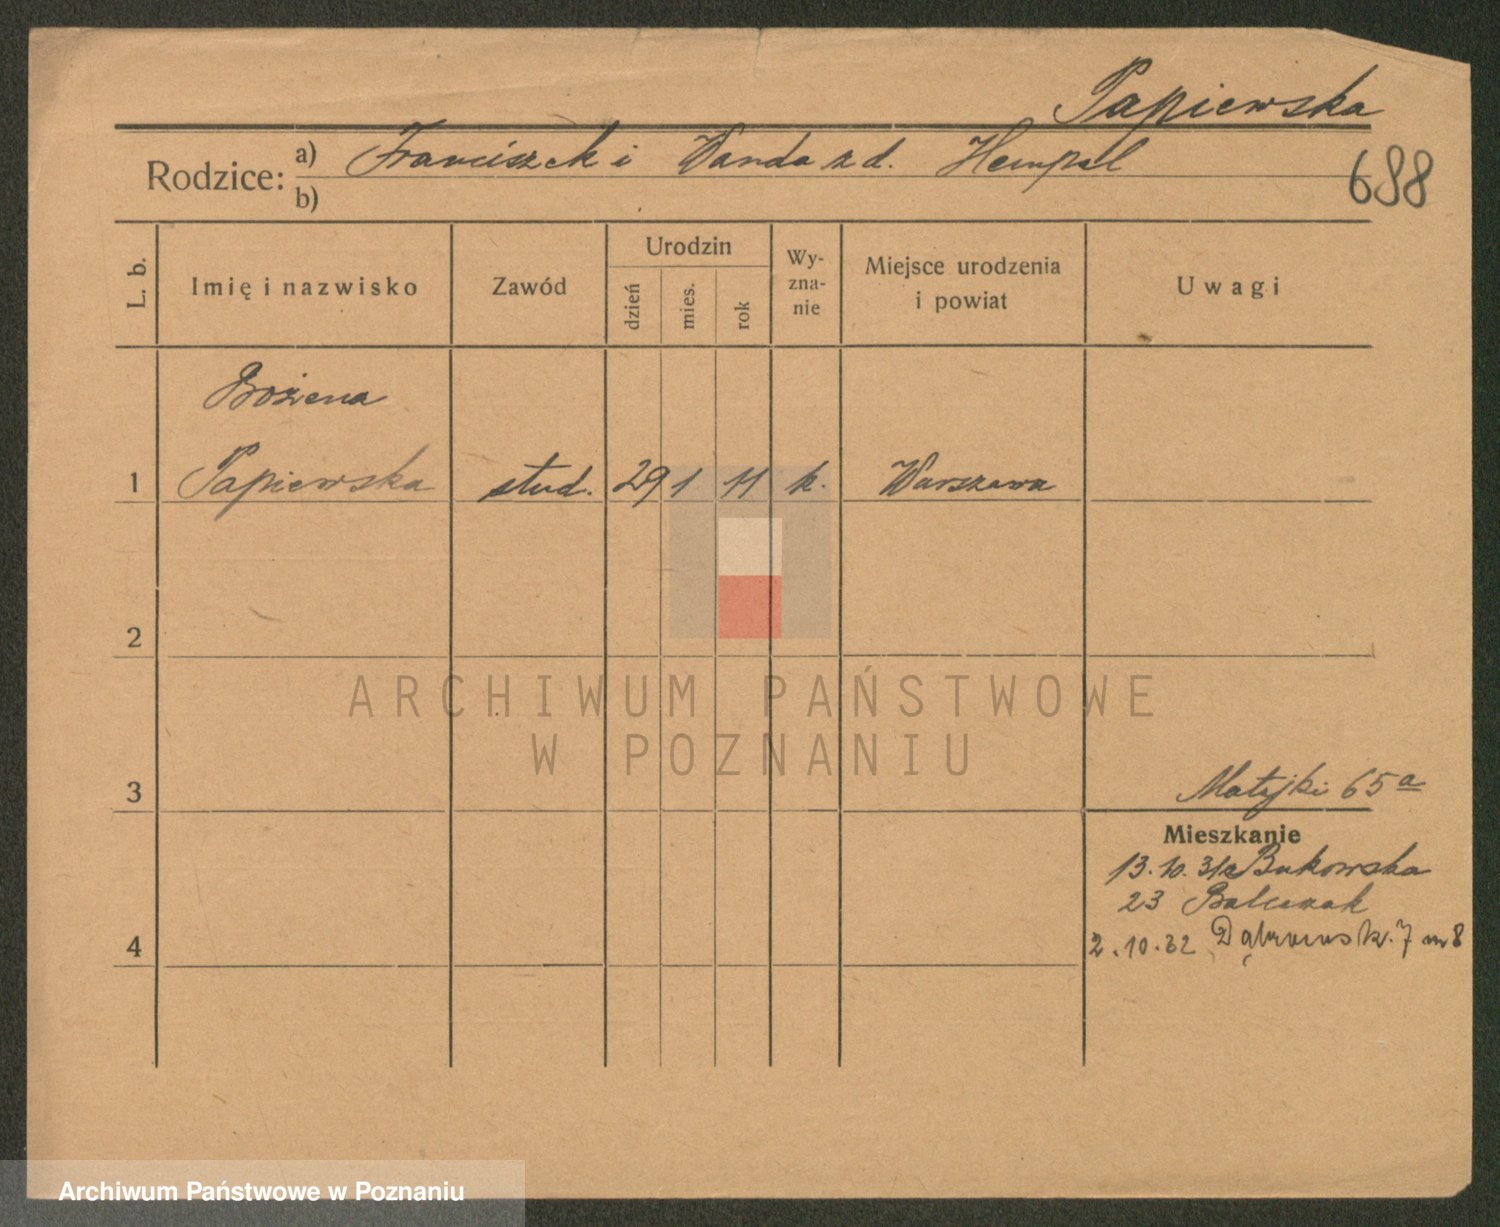 Papiewska
Rodzice: a) Franciszek i Wanda z d. Hempel
b)
688
L. b.
Imię i nazwisko
Zawód
Urodzin
dzień
mies.
rok
Wy-
zna-
nie
Miejsce urodzenia
i powiat
Uwagi
Bożena
1 Papiewska stud. 29 1 11 k. Warszawa
2
ARCHIWUM PAŃSTWOWE
W POZNANIU
3
Matejki 65a
Mieszkanie
13.10.31 Bukowska
23 Balcerak
4
2.10.32 Dąbrowsk. 7 m 8
Archiwum Państwowe w Poznaniu